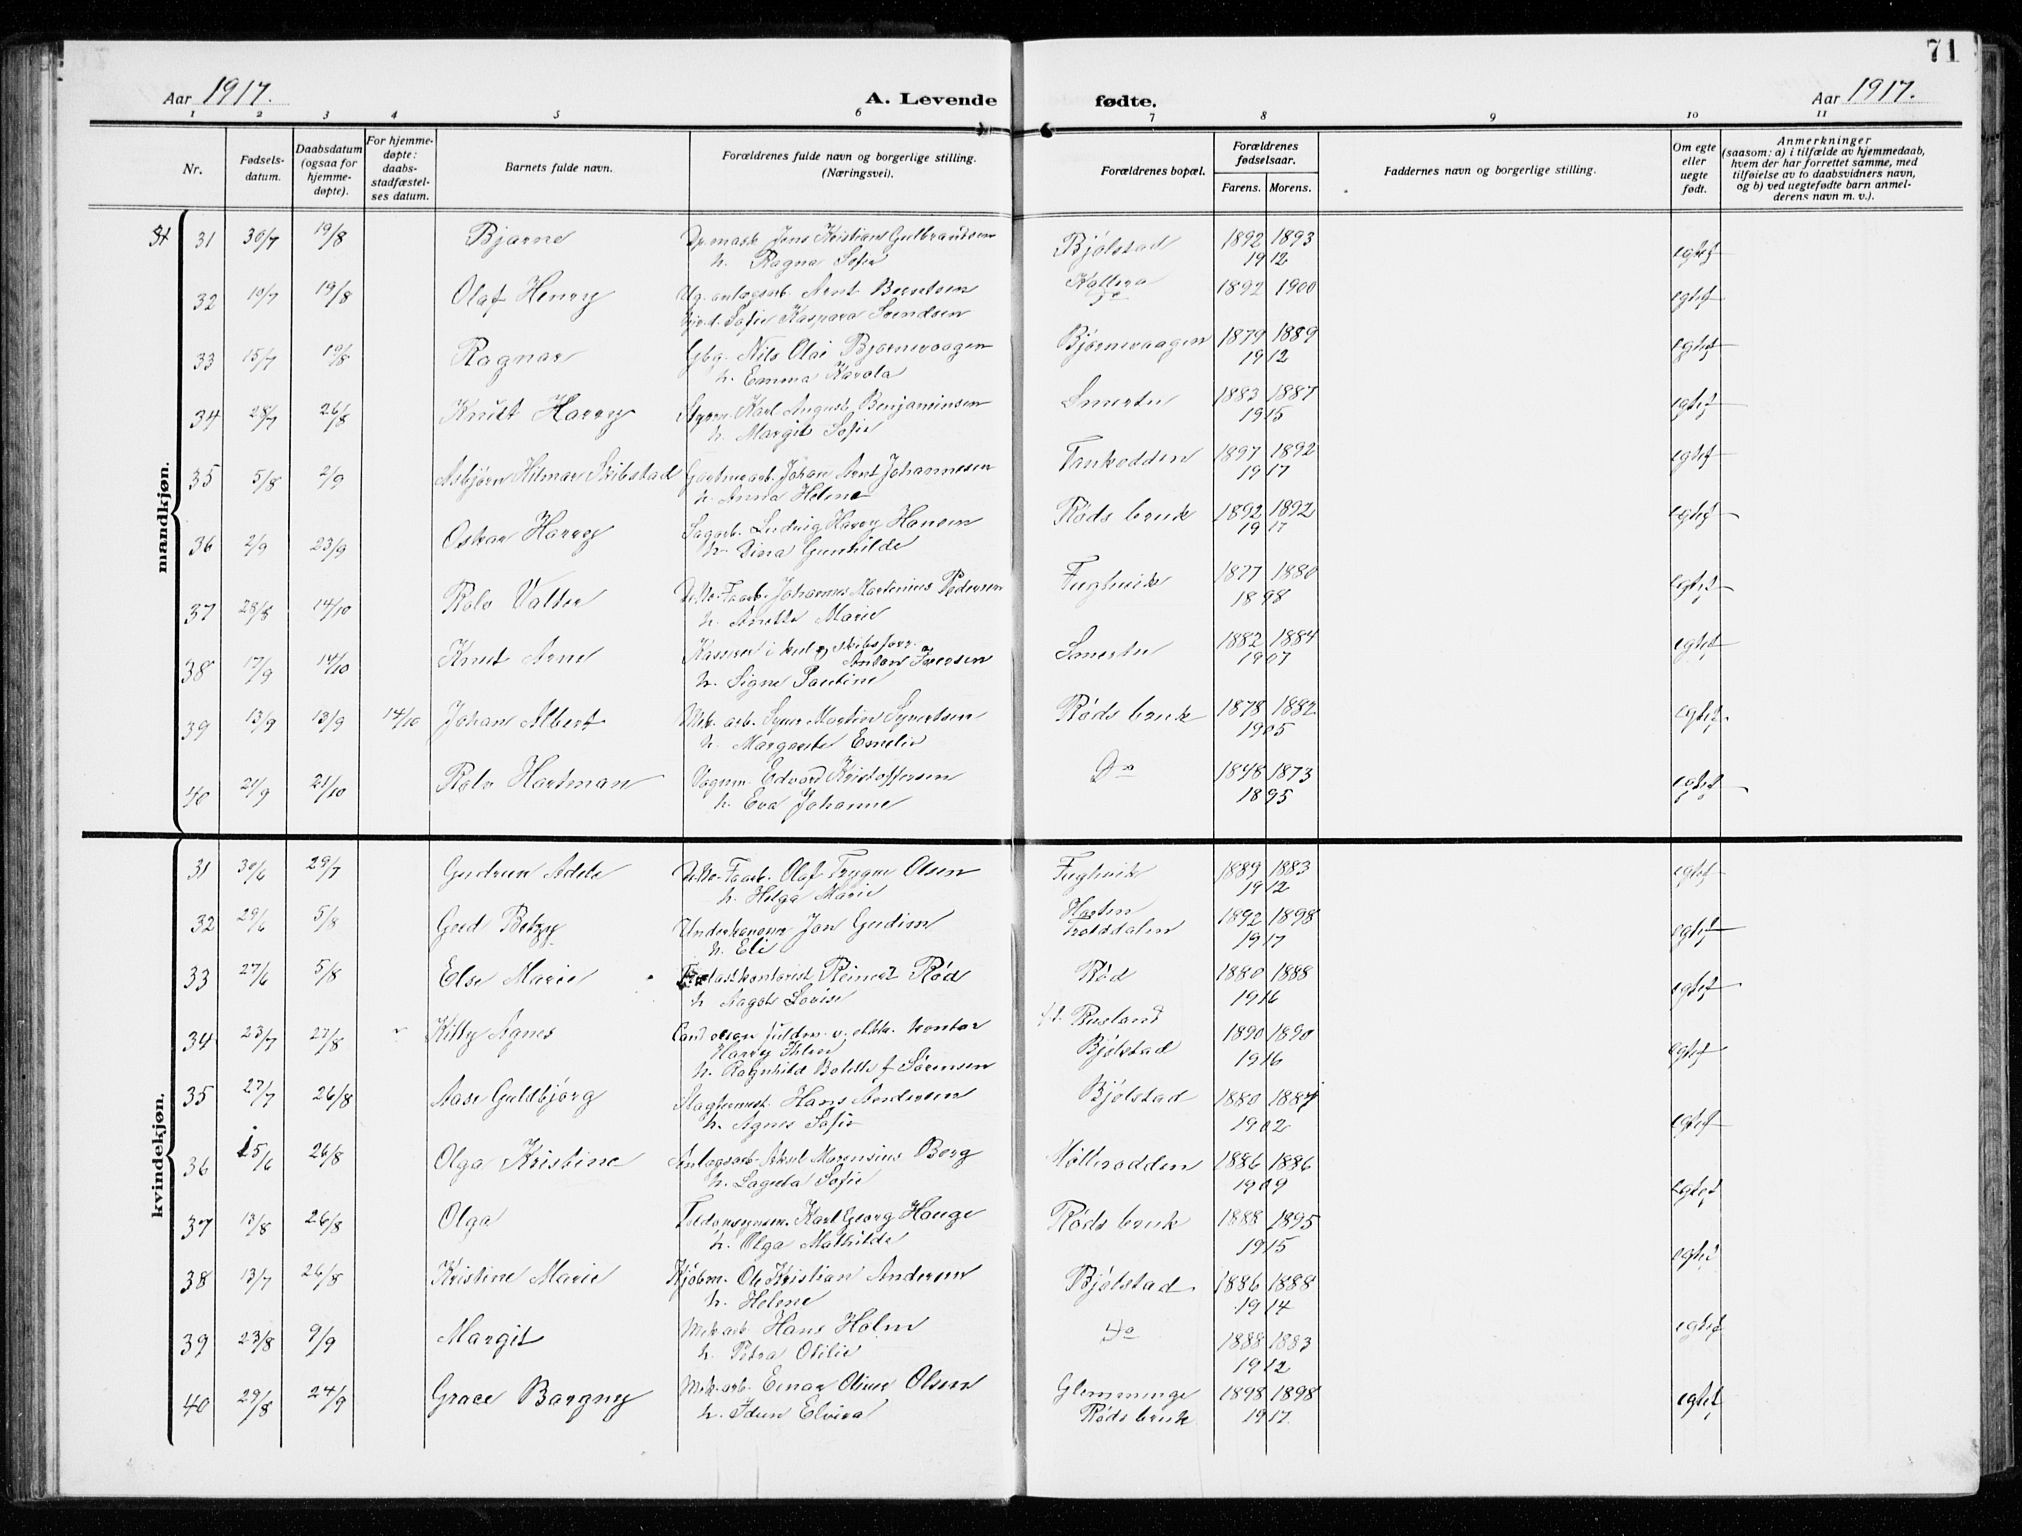 71
Aar 1917.
A. Levende fødte.
Aar 1917.
1 2 3 4 5 6 7 8 9 10 11
Nr.
Fødsels-
datum.
Daabsdatum
(ogsaa for
hjemme-
døpte).
For hjemme-
døpte:
daabs-
stadfæstel-
ses datum.
Barnets fulde navn.
Forældrenes fulde navn og borgerlige stilling.
(Næringsvei).
Forældrenes bopæl.
Forældrenes
fødselsaar.
Farens. Morens.
Faddernes navn og borgerlige stilling.
Om egte
eller
uegte
født.
Anmerkninger
(saasom: a) i tilfælde av hjemmedaab,
hvem der har forrettet samme, med
tilføielse av to daabsvidners navn,
og b) ved uegtefødte barn anmel-
derens navn m. v.).
mandkjøn.
31 30/7 19/8 Bjarne Jens Kristian Gulbrandsen Bjølstad 1892 1893 egtef
h. Ragna Sofie 1912
32 10/7 19/8 Olaf Henry Arnt Berntsen 1892 1900 egtef
Sofie Kaspara Svendsen
33 15/7 19/8 Ragnar Gbr. Nils Olai Bjørnevaagen Bjørnevaagen 1879 1889 egtef
h. Emma Karola 1912
34 28/7 26/8 Knut Harry Styrm. Karl August Benjaminsen Smertu 1883 1887 egtef
h. Margit Sofie 1915
35 5/8 2/9 Asbjørn Hilmar Skibstad Johan Arnt Johannesen Tankodden 1897 1892 egtef
h. Anna Helene 1917
36 2/9 23/9 Oskar Harry Sagarb. Ludvig Harry Hansen Røds bruk 1892 1892 egtef
h. Dina Gunhilde 1917
37 28/8 14/10 Rolv Valter Johannes Martenius Pedersen Fuglevik 1877 1880 egtef
h. Anette Marie 1898
38 17/9 14/10 Knut Arne Kasserer i Anton Iversen Smertu 1882 1884 egtef
h. Signe Pauline 1907
39 13/9 13/9 14/10 Johan Albert Mek. arb. Syver Martin Syvertsen Røds bruk 1878 1882 egtef.
h. Margarete Emelie 1905
40 21/9 21/10 Rolv Hartman Vognm. Edvard Kristoffersen Do 1848 1873 egtef
h. Eva Johanne 1895
kvindekjøn.
31 30/6 29/7 Gudrun Adele Olaf Trygve Olsen Fuglevik 1889 1883 egtef
h. Helga Marie 1912
32 29/6 5/8 Gerd Betzy Underkanoner Jon Gudim Horten 1892 1898 egtef
h. Eli 1917
33 27/6 5/8 Else Marie Reinert Rød Rød 1880 1888 egtef
h. Aagot Lovise 1916
34 23/7 27/8 Kitty Agnes Cand. kontor f. t. Rusland 1890 1890 egtef
Harry Ihlen Bjølstad 1916
h. Ragnhild Bolette f. Sørensen
35 27/7 26/8 Aase Guldbjørg Slagtermest. Hans Andersen Bjølstad 1880 1884 egtef
h. Agnes Sofie 1902
36 15/6 26/8 Olga Kristine Anlægsarb. Aksel Marensius Berg Møllerodden 1886 1886 egtef
h. Lagueta Sofie 1909
37 13/8 26/8 Olga Karl Georg Hauge Røds bruk 1888 1895 egtef
h. Olga Mathilde 1915
38 13/7 26/8 Kristine Marie Kjøbm. Ole Kristian Andersen Bjølstad 1886 1888 egtef
h. Helene 1914
39 23/8 9/9 Margit Mek arb Hans Holm Do 1888 1883 egtef
h. Petra Otilie 1912
40 29/8 24/9 Grace Bargny Mek. arb. Einar Oliver Olsen Glemminge 1898 1898 egtef
h. Idun Elvira Røds bruk 1917.